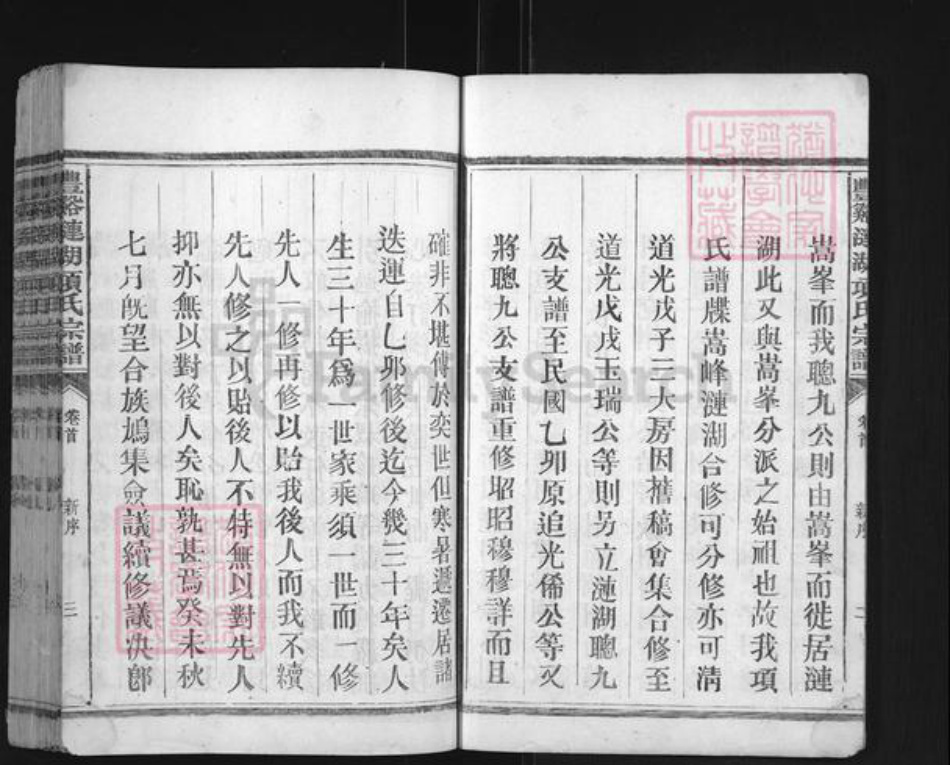 豐谿漣湖項氏宗譜
卷首
新序
二
嵩峯而我聰九公則由嵩峯而徙居漣
湖此又與嵩峯分派之始祖也故我項
氏譜牒嵩峰漣湖合修可分修亦可清
道光戊子三大房因舊稿會集合修至
道光戊戌玉瑞公等則另立漣湖聰九
公支譜至民國乙卯原追光俻公等又
將聰九公支譜重修昭昭穆穆詳而且
確非不堪傳於奕世但寒暑遞遷居諸
迭運自乙卯修後迄今幾三十年矣人
生三十年爲一世家乘須一世而一修
先人一修再修以貽我後人而我不續
先人修之以貽後人不特無以對先人
抑亦無以對後人矣恥孰甚焉癸未秋
七月旣望合族鳩集僉議續修議決郎
豐谿漣湖項氏宗譜
卷首
新序
三
FamilySearch